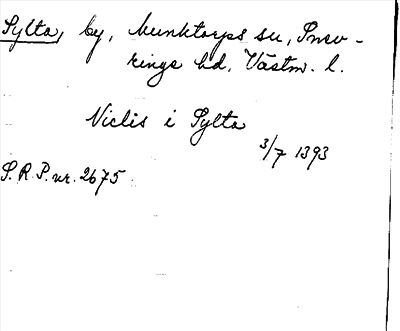 Sylta, by, Munktorps sn, Snev-
ringe hd, Västm. l.
Niclis i Sylta
3/7 1393
S.R.P. nr. 2675